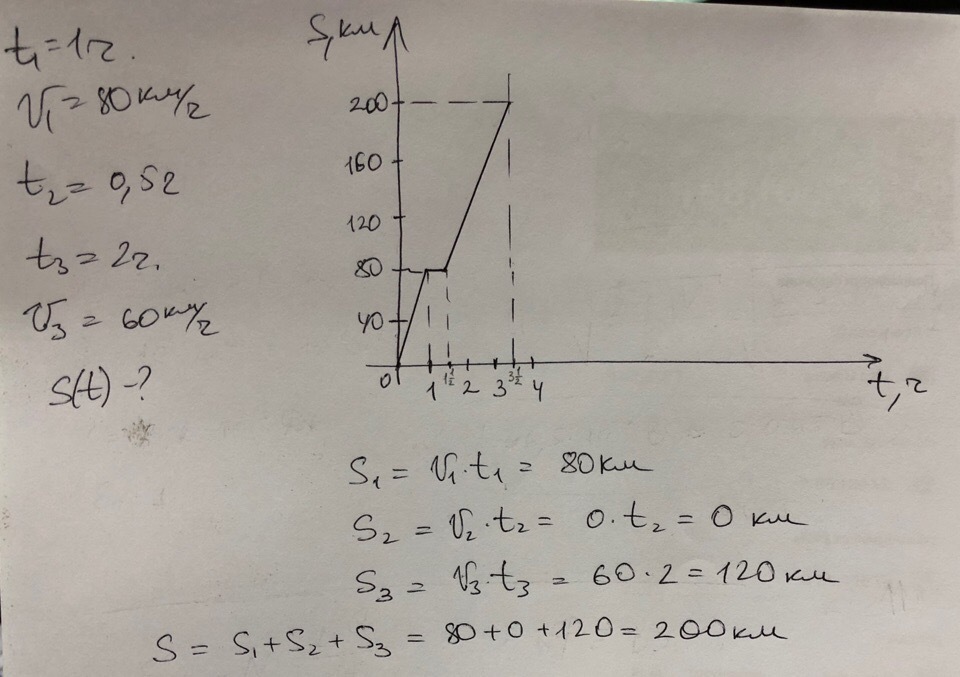 t₁=1ч.
V₁=80км/ч
t₂=0,5ч
t₃=2ч.
V₃=60км/ч
S(t)-?
S,км
200
160
120
80
40
0 1 1½ 2 3 3½ 4
t,ч
S₁ = V₁·t₁ = 80км
S₂ = V₂·t₂ = 0·t₂ = 0 км
S₃ = V₃·t₃ = 60·2=120км
S = S₁+S₂+S₃ = 80+0+120= 200км